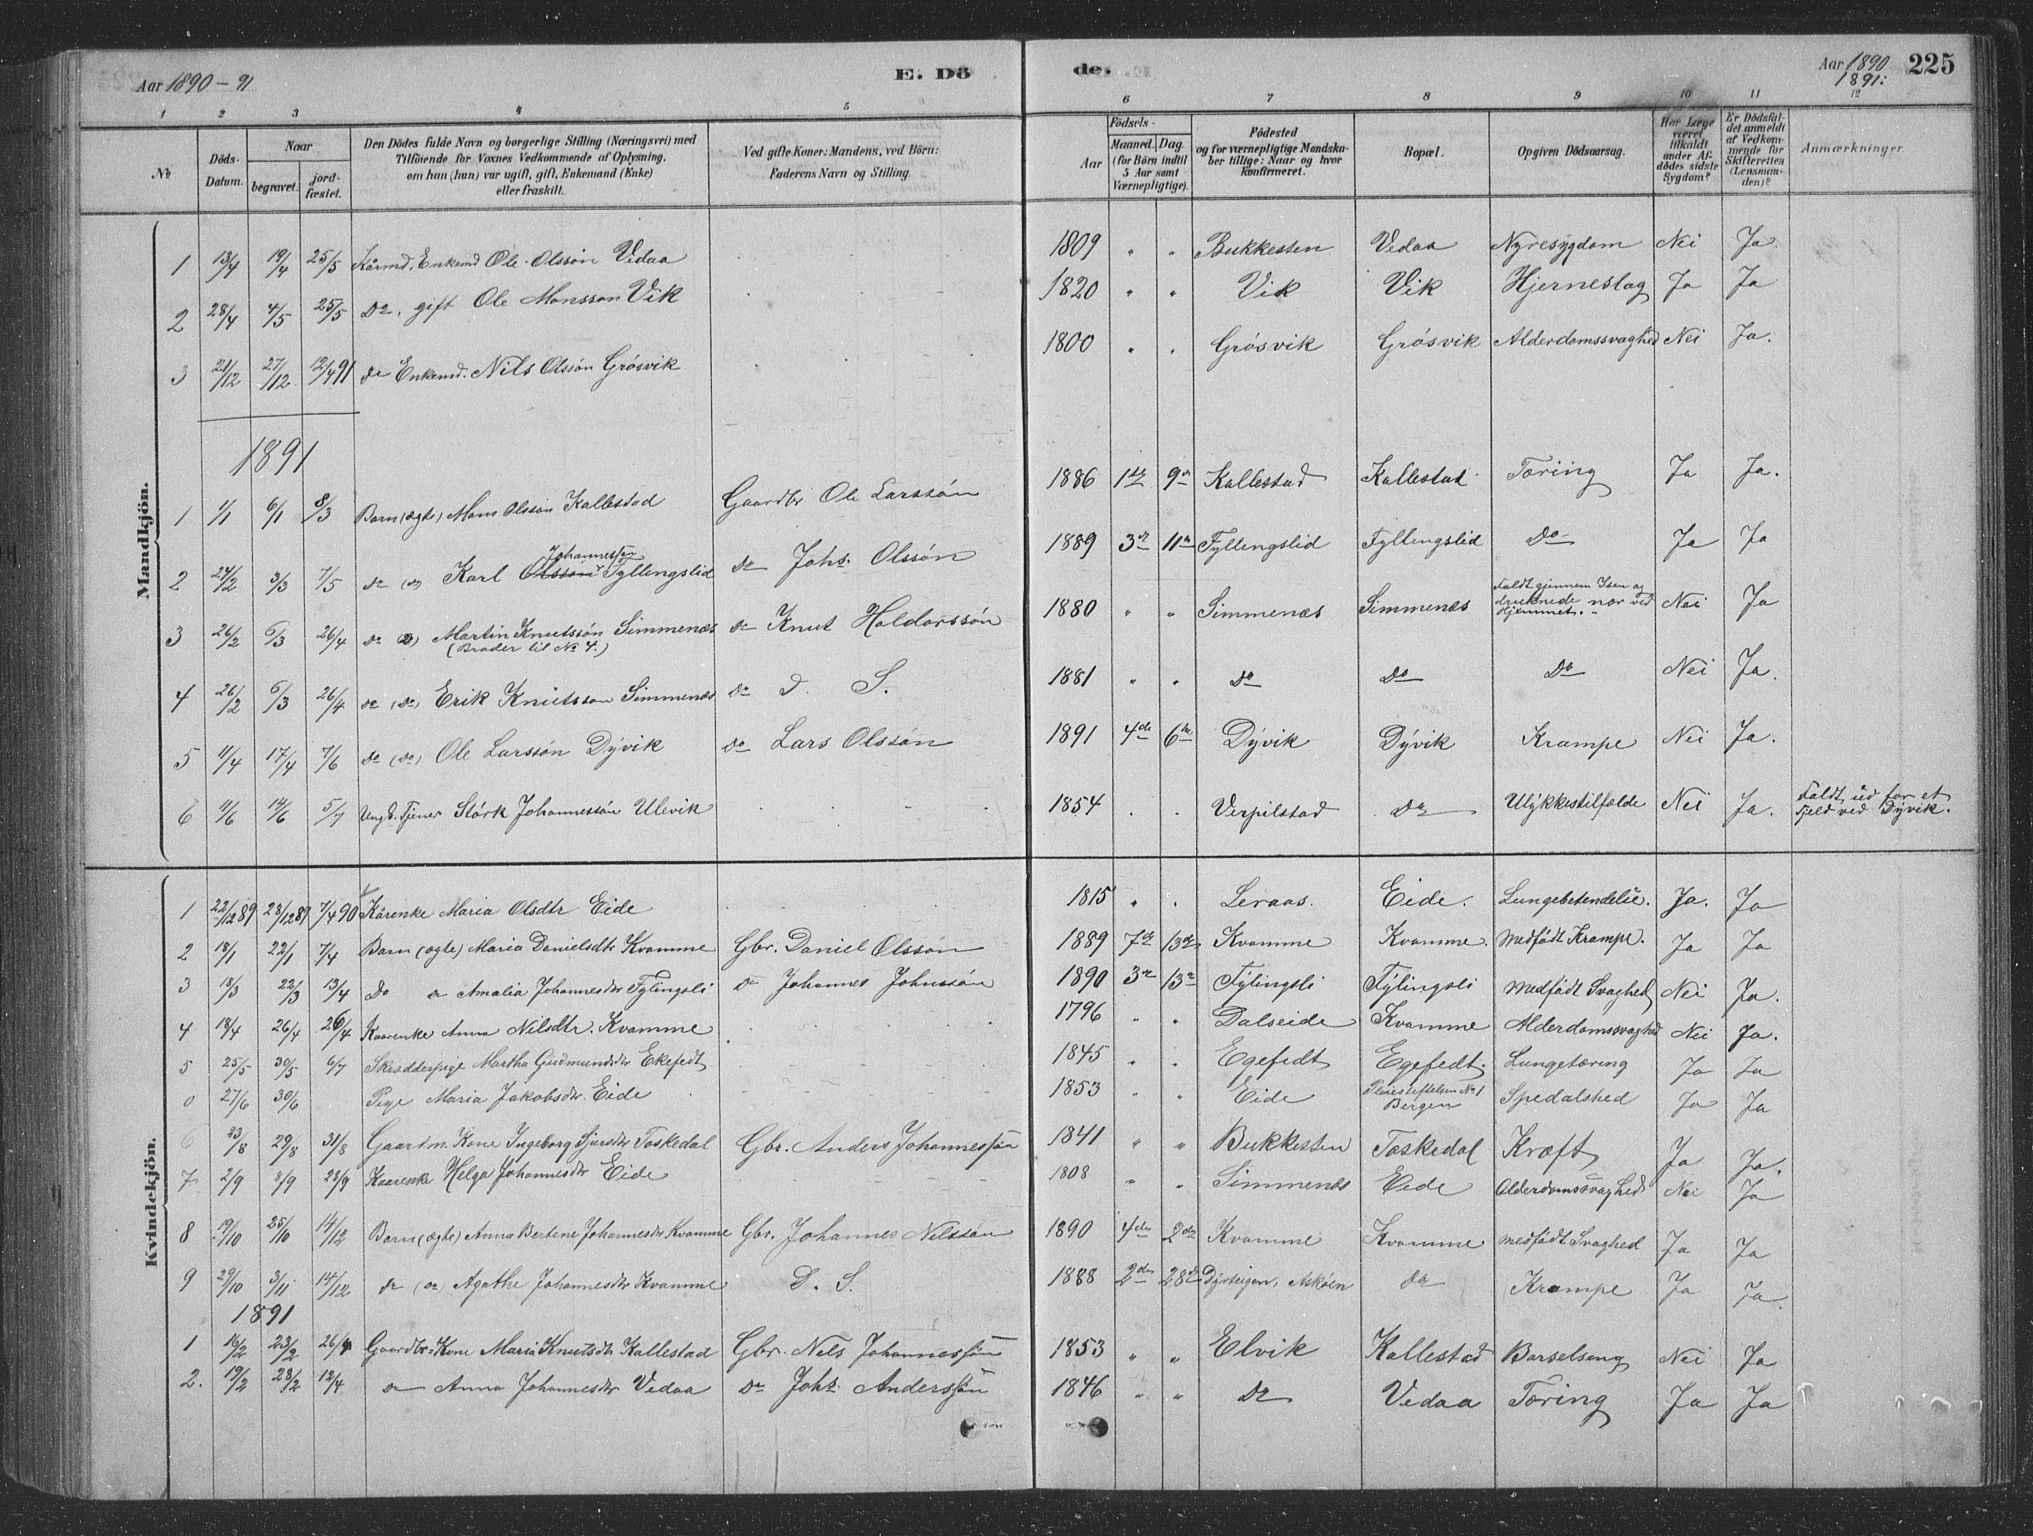 Aar 1890 - 91
E. Dö
de.
Aar 1890
1891:
225
1 2 3 4 5 6 7 8 9 10 11 12
№
Döds-
Datum.
Naar
begravet.
jord-
fæstet.
Den Dödes fulde Navn og borgerlige Stilling (Næringsvei) med
Tilföiende for Voxnes Vedkommende af Oplysning,
om han (hun) var ugift, gift, Enkemand (Enke)
eller fraskilt.
Ved gifte Koner: Mandens, ved Börn:
Faderens Navn og Stilling.
Aar
Födsels-
Maaned. Dag.
(for Börn indtil
5 Aar samt
Værnepligtige).
Födested
og for værnepligtige Mandska-
ber tillige: Naar og hvor
konfirmeret.
Bopæl.
Opgiven Dödsaarsag.
Har Læge
været
tilkaldt
under Af-
dödes sidste
Sygdom?
Er Dödsfal-
det anmeldt
af Vedkom-
mende for
Skifteretten
(Lensman-
den)?
Anmærkninger.
Mandkjön.
1 13/4 19/4 25/5 Kårmd, Enkemd Ole Olssön Vedaa 1809 " " Bukkesten Vedaa Nyresygdom Nei Ja.
2 28/4 4/5 25/5 Do. gift Ole Monsson Vik 1820 " " Vik Vik Hjerneslag Ja Ja
3 21/12 27/12 12/4 91 do Enkemd. Nils Olssön Grösvik 1800 " " Grösvik Grösvik Alderdomssvaghed Nei Ja.
1891
1 1/1 6/1 8/3 Barn (ægte) Mons Olsson Kallestad Gaardbr Ole Larssön 1886 1de 9de Kallestad Kallestad Tæring Ja Ja.
2 24/2 3/3 7/5 do (do) Karl Olssön Johannessön Fyllingslid do Johs. Olssön 1889 3de 11te Fyllingslid Fyllingslid Do Ja Ja
3 26/2 6/3 26/4 do (do) Martin Knutssön Simmenæs do Knut Haldorssön 1880 " " Simmenæs Simmenæs Faldt gjennem Isen og
druknede nær ved
Hjemmet. Nei Ja
(Broder til No 4.)
4 26/2 6/3 26/4 do (do) Erik Knutsson Simmenæs do D. S. 1881 " " do do do Nei Ja.
5 11/4 17/4 7/6 do (do) Ole Larssön Dÿvik do Lars Olssön 1891 4de 6te Dÿvik Dÿvik Krampe Nei Ja.
6 11/6 14/6 5/7 Ungk. Tjener Störk Johannessön Ulevik 1854 Verpilstad do Ulÿkkestilfælde Nei Ja. Faldt ud for et
Fjeld ved Dÿvik.
Kvindekjön.
1 22/12 89 28/12 89 7/4 90 Kårenke Maria Olsdtr Eide 1815 " " Leraas Eide. Lungebetendelse. Ja. Ja
2 18/1 22/1 7/4 Barn (ægte) Maria Danielsdtr Kvamme Gbr. Daniel Olssön 1889 7de 13de Kvamme Kvamme. Medfödt Krampe. Ja Ja
3 18/3 22/3 13/4 Do do Amalia Johannesdtr Fÿlingsli do Johannes Johnssön 1890 3de 13de Fÿlingsli Fÿlingsli Medfödt Svaghed Nei Ja.
4 18/4 26/4 26/4 Kaarenke Anna Nilsdtr. Kvamme 1796 " " Dalseide Kvamme Alderdomssvaghed Nei Ja.
5 25/5 30/5 6/7 Skrædderpige Martha Gudmundsdtr Ekefedt 1845 " " Egefedt Egefedt. Lungetæring Ja Ja
0 27/6 30/6 Pige Maria Jakobsdtr. Eide 1853 " " Eide Pleiestiftelsen No 1
Bergen Spedalshed Ja Ja
6 23/8 29/8 31/8 Gaardm. Kone Ingeborg Sjursdtr Toskedal Gbr. Anders Johannessön 1841 " " Bukkesten Toskedal Kræft Ja Ja.
7 2/9 8/9 28/9 Kaarenke Helga Johannesdtr Eide 1808 " " Simmenæs Eide Alderdomssvaghed Nei Ja
8 19/10 25/10 14/12 Barn (ægte) Anna Bertine Johannesdtr Kvamme Gbr. Johannes Nilssön 1890 4de 2den Kvamme Kvamme Medfödt Svaghed Ja Ja
9 29/10 3/11 14/12 do (do) Agathe Johannesdtr Kvamme D. S. 1888 2den 28de Dÿrteigen, Asköen do Krampe Ja Ja.
1891
1 16/2 23/2 26/4 Gaardbr. Kone Maria Knutsdtr Kallestad Gbr. Nils Johannessön 1853 " " Elvik Kallestad Barselseng Nei Ja
2. 19/2 28/2 12/4 do Anna Johannesdtr Vedaa do Johs. Anderssön 1846 " " do Vedaa Tæring Ja Ja